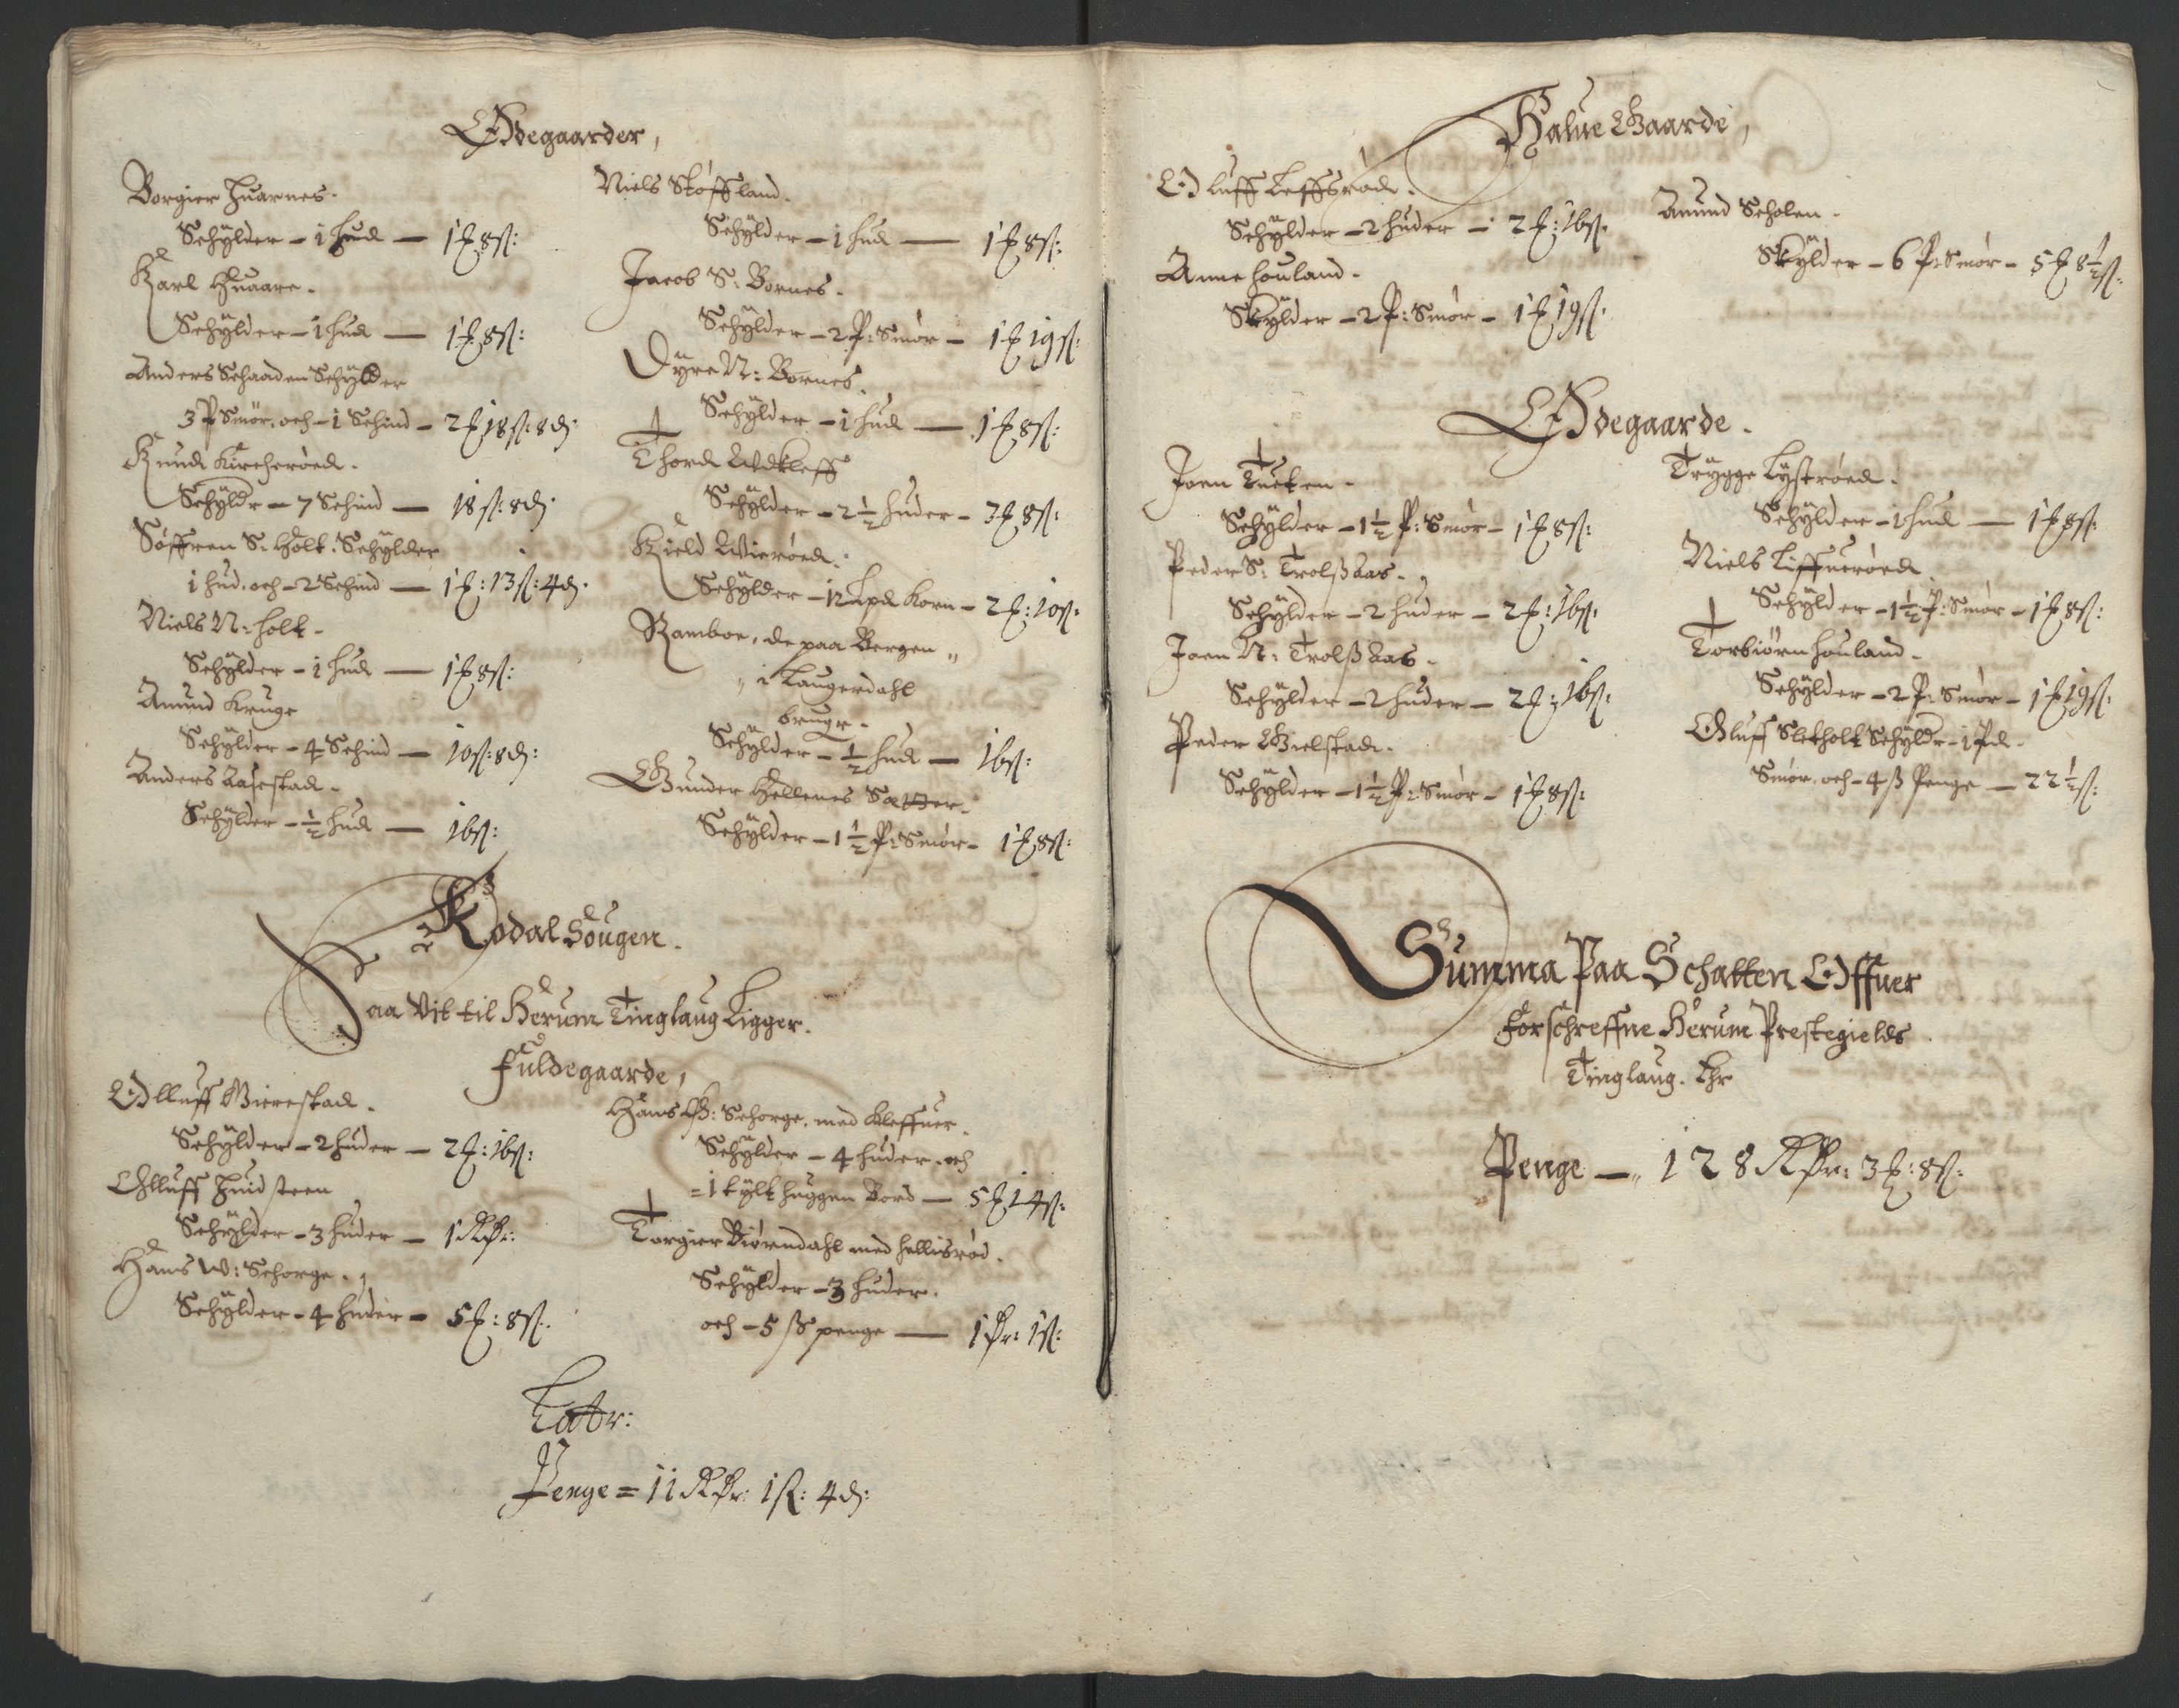 Ødegaarder,
Borgier Huarnes.
Schylder – 1 hud — 1 ℔ 8 sk:
Karl Huaare.
Schylder – 1 hud — 1 ℔ 8 sk:
Anders Schaaden Schylder
3 P Smör. och – 1 Schind – 2 ℔ 18 sk: 8 d:
Knud Kircheröed.
Schyldr – 7 Schind — 18 sk: 8 d:
Söffren S: Holt. Schylder
1 hud. och – 2 Schind — 1 ℔: 13 sk: 4 d.
Niels N: Holt.
Schylder – 1 hud — 1 ℔ 8 sk:
Amund Kruge
Schylder – 4 Schind — 10 sk: 8 d:
Anders Aasestad.
Schylder – ½ hud — 16 sk:
Niels Stöffland.
Schylder – 1 hud — 1 ℔ 8 sk:
Jacob S: Bornes.
Schylder – 2 P: Smör – 1 ℔ 19 sk:
Dyre N: Bornes.
Schylder – 1 hud — 1 ℔ 8 sk:
Thord Wdkleff
Schylder – 2½ huder – 3 ℔ 8 sk:
Kield Wieröed.
Schylder – 12 Lpd Korn – 2 ℔: 10 sk:
Ramboe, de paa Bergen
i Laugerdahl
bruger.
Schylder – ½ hud — 16 sk:
Gunder Hellenes Sætter.
Schylder – 1½ P: Smör – 1 ℔ 8 sk:
Kodal Sougen.
Saa Vit til Herum Tinglaug Ligger.
Fuldegaarde,
Olluff Gierestad.
Schylder – 2 huder – 2 ℔: 16 sk:
Olluff Huidsteen
Schylder – 3 huder – 1 Rdr:
Hans W: Schorge.
Schylder – 4 huder – 5 ℔: 8 sk:
Hans Ø: Schorge, med Kleffuer.
Schylder – 4 huder. och
= 1 tylt huggen Bord — 5 ℔ 14 sk:
Torgier Biörndahl med Hellisröd.
Schylder – 3 huder.
och – 5 ß penge — 1 dr: 1 sk:
Latr:
Penge = 11 Rdr: 1 sk: 4 d:
Halue Gaarde,
Oluff Leffsröd.
Schylder – 2 huder – 2 ℔: 16 sk.
Anne Houland.
Skylder – 2 P: Smör – 1 ℔ 19 sk.
Amund Scholen.
Skylder – 6 P: Smör – 5 ℔ 8½ sk.
Ødegaarde.
Joen Tueten.
Schylder – 1½ P: Smör – 1 ℔ 8 sk:
Peder S: Trolßaas.
Schylder – 2 huder – 2 ℔: 16 sk.
Joen N: Trolßaas.
Schylder – 2 huder – 2 ℔: 16 sk:
Peder Gielstad.
Schylder – 1½ P: Smör – 1 ℔ 8 sk:
Trygge Lyströed.
Schylder – 1 hud — 1 ℔ 8 sk:
Niels Liffueröed
Schylder – 1½ P: Smör – 1 ℔ 8 sk:
Torbiörn Houland.
Schylder – 2 P: Smör – 1 ℔ 19 sk:
Oluff Sletholt Schyldr – 1 Pd.
Smör. och – 4 ß Penge — 22½ sk:
Summa Paa Schatten Offuer
Forschreffne Herum Prestegields
Tinglaug. Ehr
Penge — 128 Rdr: 3 ℔: 8 sk: